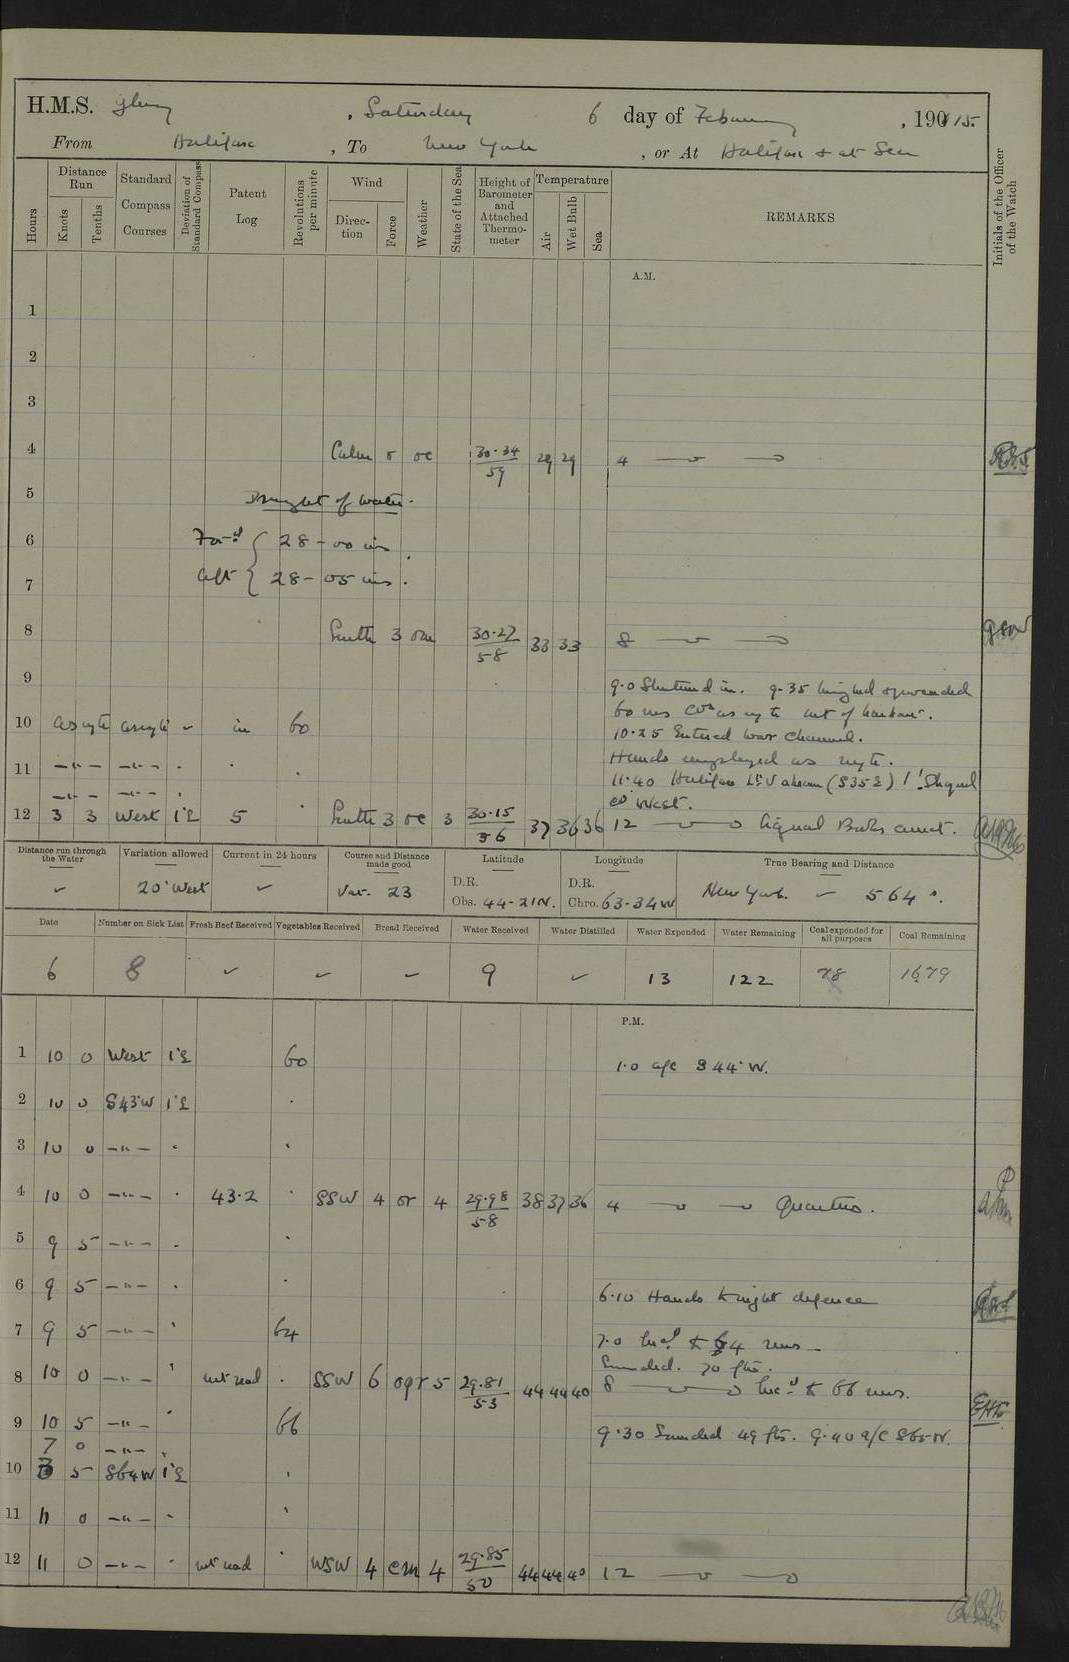 H.M.S. Glory , Saturday 6 day of February , 1901915.
From Halifax , To New York , or At Halifax & at Sea
Hours Distance Run Knots Tenths Standard Compass Courses Deviation of Standard Compass Patent Log Revolutions per minute Wind Direction Force Weather State of the Sea Height of Barometer and Attached Thermometer Temperature Air Wet Bulb Sea REMARKS Initials of the Officer of the Watch
A.M.
1
2
3
4 Calm 0 oc 30.34 59 29 29 4
5 Draught of Water.
6 For'd 28 - 00 ins
7 Aft 28 - 05 ins.
8 South 3 om 30.27 58 33 33 8
9 9.0 Shortened in. 9.35 Weighed & proceeded
60 revs Cos as req'te out of harbour.
10 as reqte as reqte in 60
10.25 Entered War Channel.
Hands employed as reqte.
11 -"- -"-
11.40 Halifax Lt V abeam (S35E) 1'. Shaped
-"- -"-
co West.
12 3 3 West 1°E 5 South 3 oc 3 30.15 56 37 36 36 12 Signal Books correct.
Distance run through the Water Variation allowed 20° West Current in 24 hours Course and Distance made good Var. 23 Latitude D.R. Obs. 44-21N. Longitude D.R. Chro. 63-34W True Bearing and Distance New York 564
Date Number on Sick List Fresh Beef Received Vegetables Received Bread Received Water Received Water Distilled Water Expended Water Remaining Coal expended for all purposes Coal Remaining
6 8 9 13 122 78 1679
P.M.
1 10 0 West 1°E 60 1.0 a/c S 44° W.
2 10 0 S43°W 1°E
3 10 0 -"-
4 10 0 -"- 43.2 SSW 4 or 4 29.98 58 38 37 36 4 Quarters.
5 9 5 -"-
6 9 5 -"- 6.10 Hands to night defence
7 9 5 -"- 64 7.0 Inc'd to 64 revs
Sounded. 70 fms.
8 10 0 -"- not read SSW 6 oqr 5 29.81 53 44 44 40 8 Inc'd to 66 revs.
9 10 5 -"- 66 9.30 Sounded 49 fms. 9.40 a/c S65W.
7 0 -"-
10 3 5 S64W 1°E
11 11 0 -"-
12 11 0 -"- not read WSW 4 cm 4 29.85 50 44 44 40 12